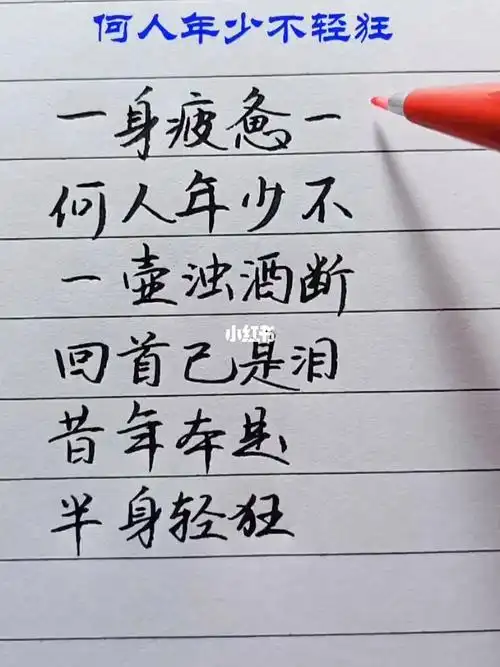 何人年少不轻狂
一身疲惫一
何人年少不
一壶浊酒断
小红书
回首已是泪
昔年本是
半身轻狂